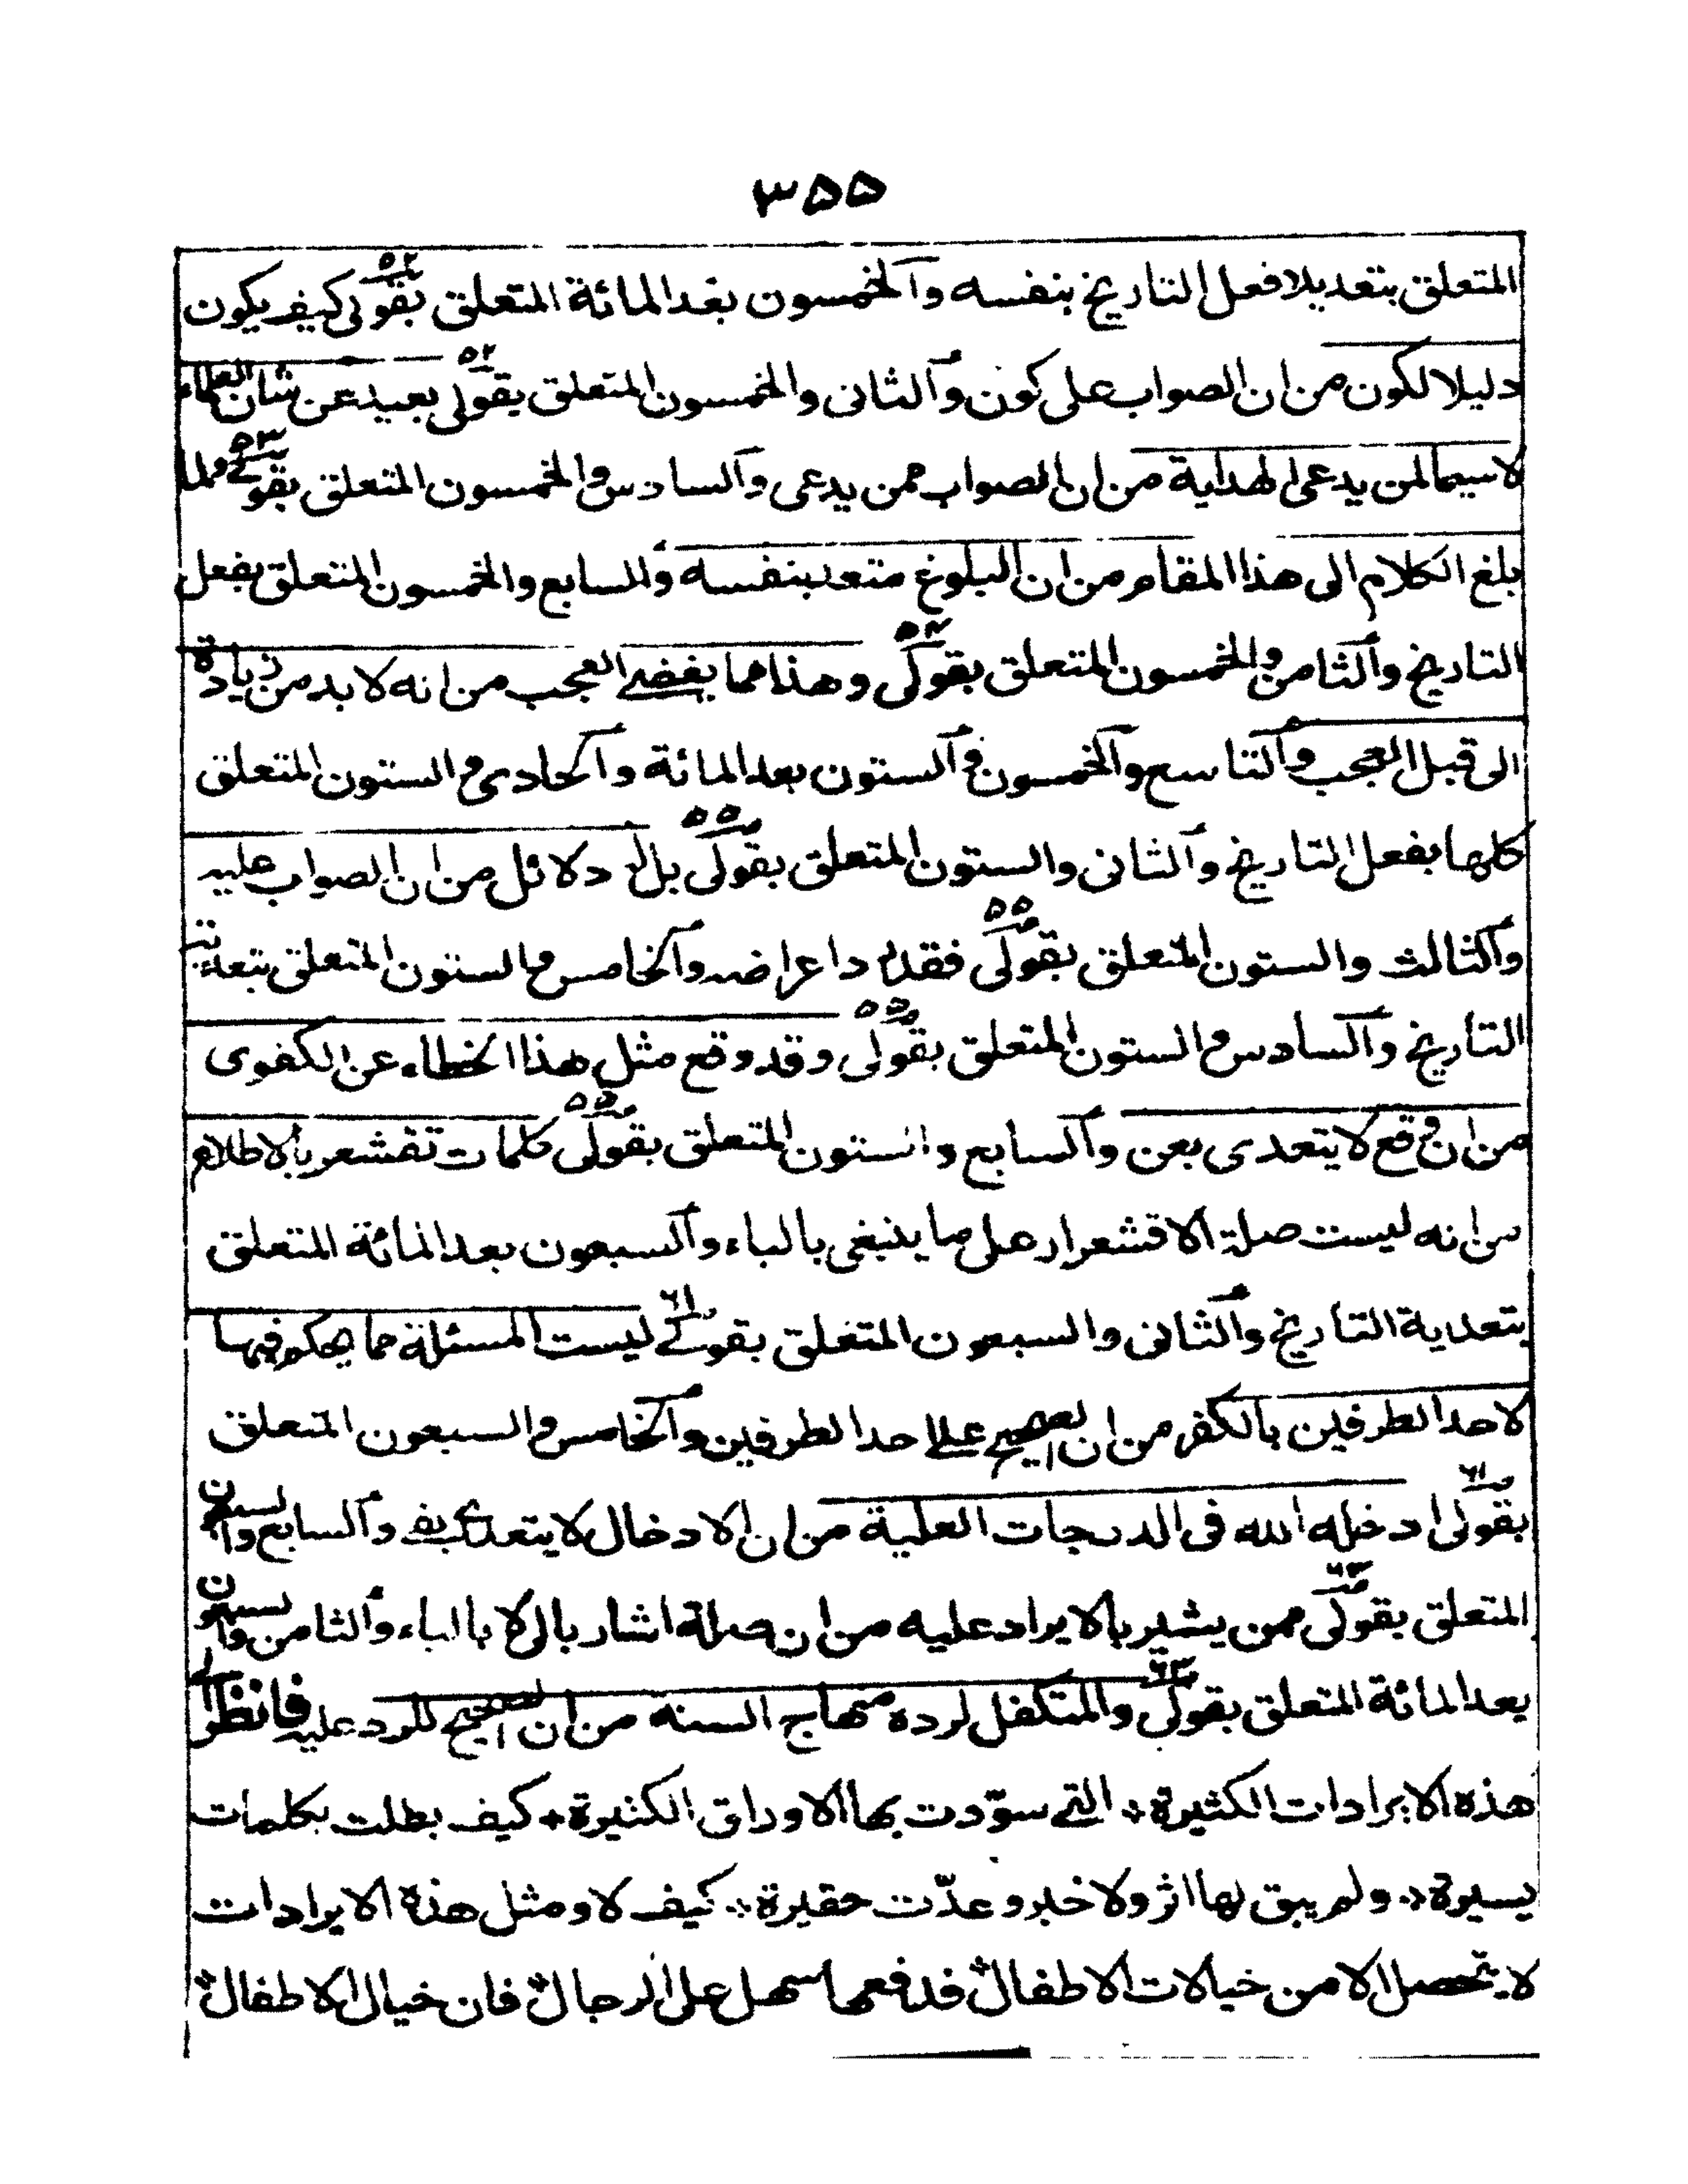 ٣٥٥
المتعلق بتعديلا فعل التاريخ بنفسه والخمسون بعد المائة المتعلق بقولى ص٥٢ كيف يكون
دليلا لكون من ان الصواب على كون والثانى والخمسون المتعلق بقولى ص٥٢ بعيد عن شان العلماء
لا سيما لمن يدعى الهداية من ان الصواب ممن يدعى والسادس والخمسون المتعلق بقولى ص٥٣ ولما
بلغ الكلام الى هذا المقام من ان البلوغ متعد بنفسه والسابع والخمسون المتعلق بفعل
التاريخ والثامن والخمسون المتعلق بقولى ص٥٤ وهذا مما يفضى العجب من انه لا بد من زيادة
الى قبل العجب والتاسع والخمسون والستون بعد المائة والحادى والستون المتعلق
كلها بفعل التاريخ والثانى والستون المتعلق بقولى ص٥٥ بل له دلائل من ان الصواب عليه
والثالث والستون المتعلق بقولى ص٥٥ فقدم داعراضه والخامس والستون المتعلق بتعدية
التاريخ والسادس والستون المتعلق بقولى ص٥٥ وقد وقع مثل هذا الخطاء عن الكفوى
من ان وقع لا يتعدى بعن والسابع والستون المتعلق بقولى ص٥٥ كلمات تقشعر بالاطلاع
من انه ليست صلة الاقشعرار على ما ينبغى بالباء والسبعون بعد المائة المتعلق
بتعدية التاريخ والثانى والسبعون المتعلق بقولى ص٦١ ليست المسئلة مما يحكم فيها
لاحد الطرفين بالكفر من ان الصحيح على احد الطرفين والخامس والسبعون المتعلق
بقولى ص٦١ ادخله الله فى الدرجات العلية من ان الادخال لا يتعدى بفى والسابع والسبعون
المتعلق بقولى ممن يشير بالايراد عليه من ان صلة اشار بالى لا بالباء والثامن والسبعون
بعد المائة المتعلق بقولى ص٦٣ والمتكفل لرده منهاج السنه من ان الصحيح للرد عليه فانظر الى
هذه الايرادات الكثيرة * التى سوّدت بها الاوراق الكثيرة * كيف بطلت بكلمات
يسيرة * ولم يبق لها اثر ولا خبر وعدّت حقيرة * كيف لا ومثل هذه الايرادات
لا يتحصل الا من خيالات الاطفال * فدفعها سهل على الرجال * فان خيال الاطفال *